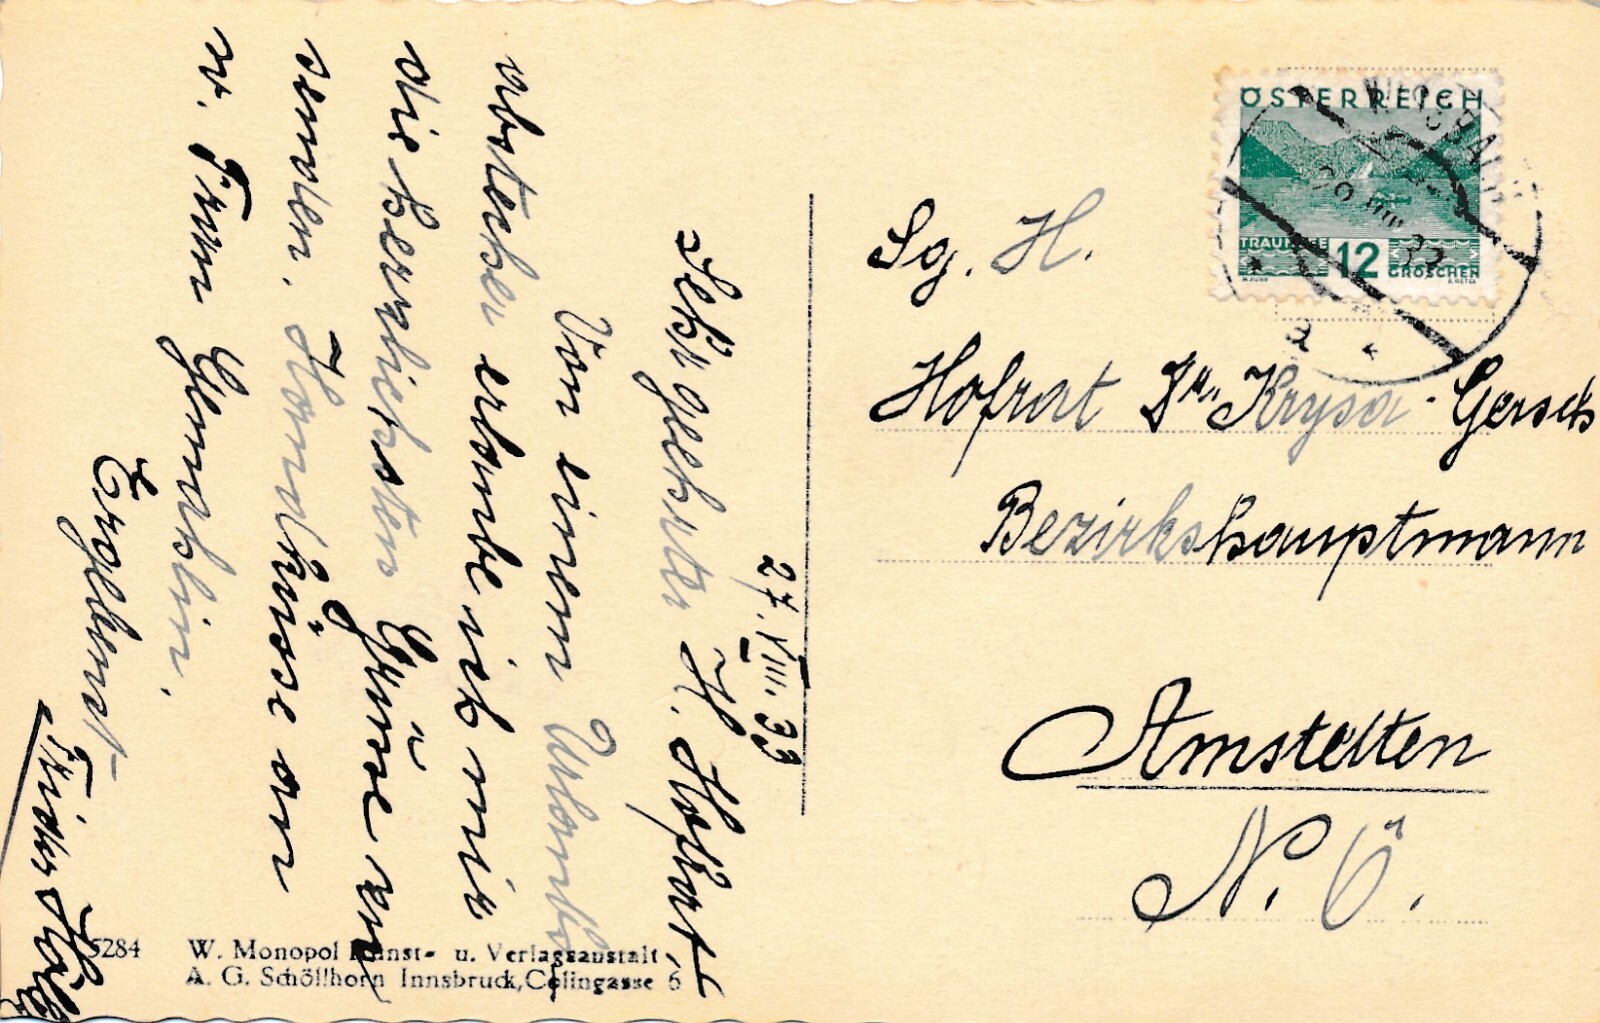 27. VIII. 33
Sehr geehrter H. Hofrat,
Von einem Urlaubs
abstecher erlaube ich mir
die herzlichsten Grüsse zu
senden. Handküsse an
w. Frau Gemahlin.
Ergebenst
5284 W. Monopol Kunst- u. Verlagsanstalt
A. G. Schöllhorn Innsbruck, Colingasse 6
ÖSTERREICH
TRAUNSEE 12 GROSCHEN
a
Sg. H.
Hofrat Dr. Krysa-Gersch
Bezirkshauptmann
Amstetten
N. Ö.